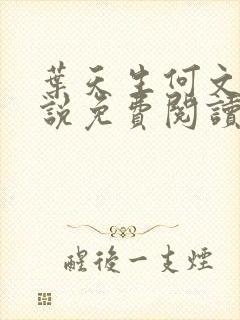 葉天生何文
說免費閱讀
醒後一支煙